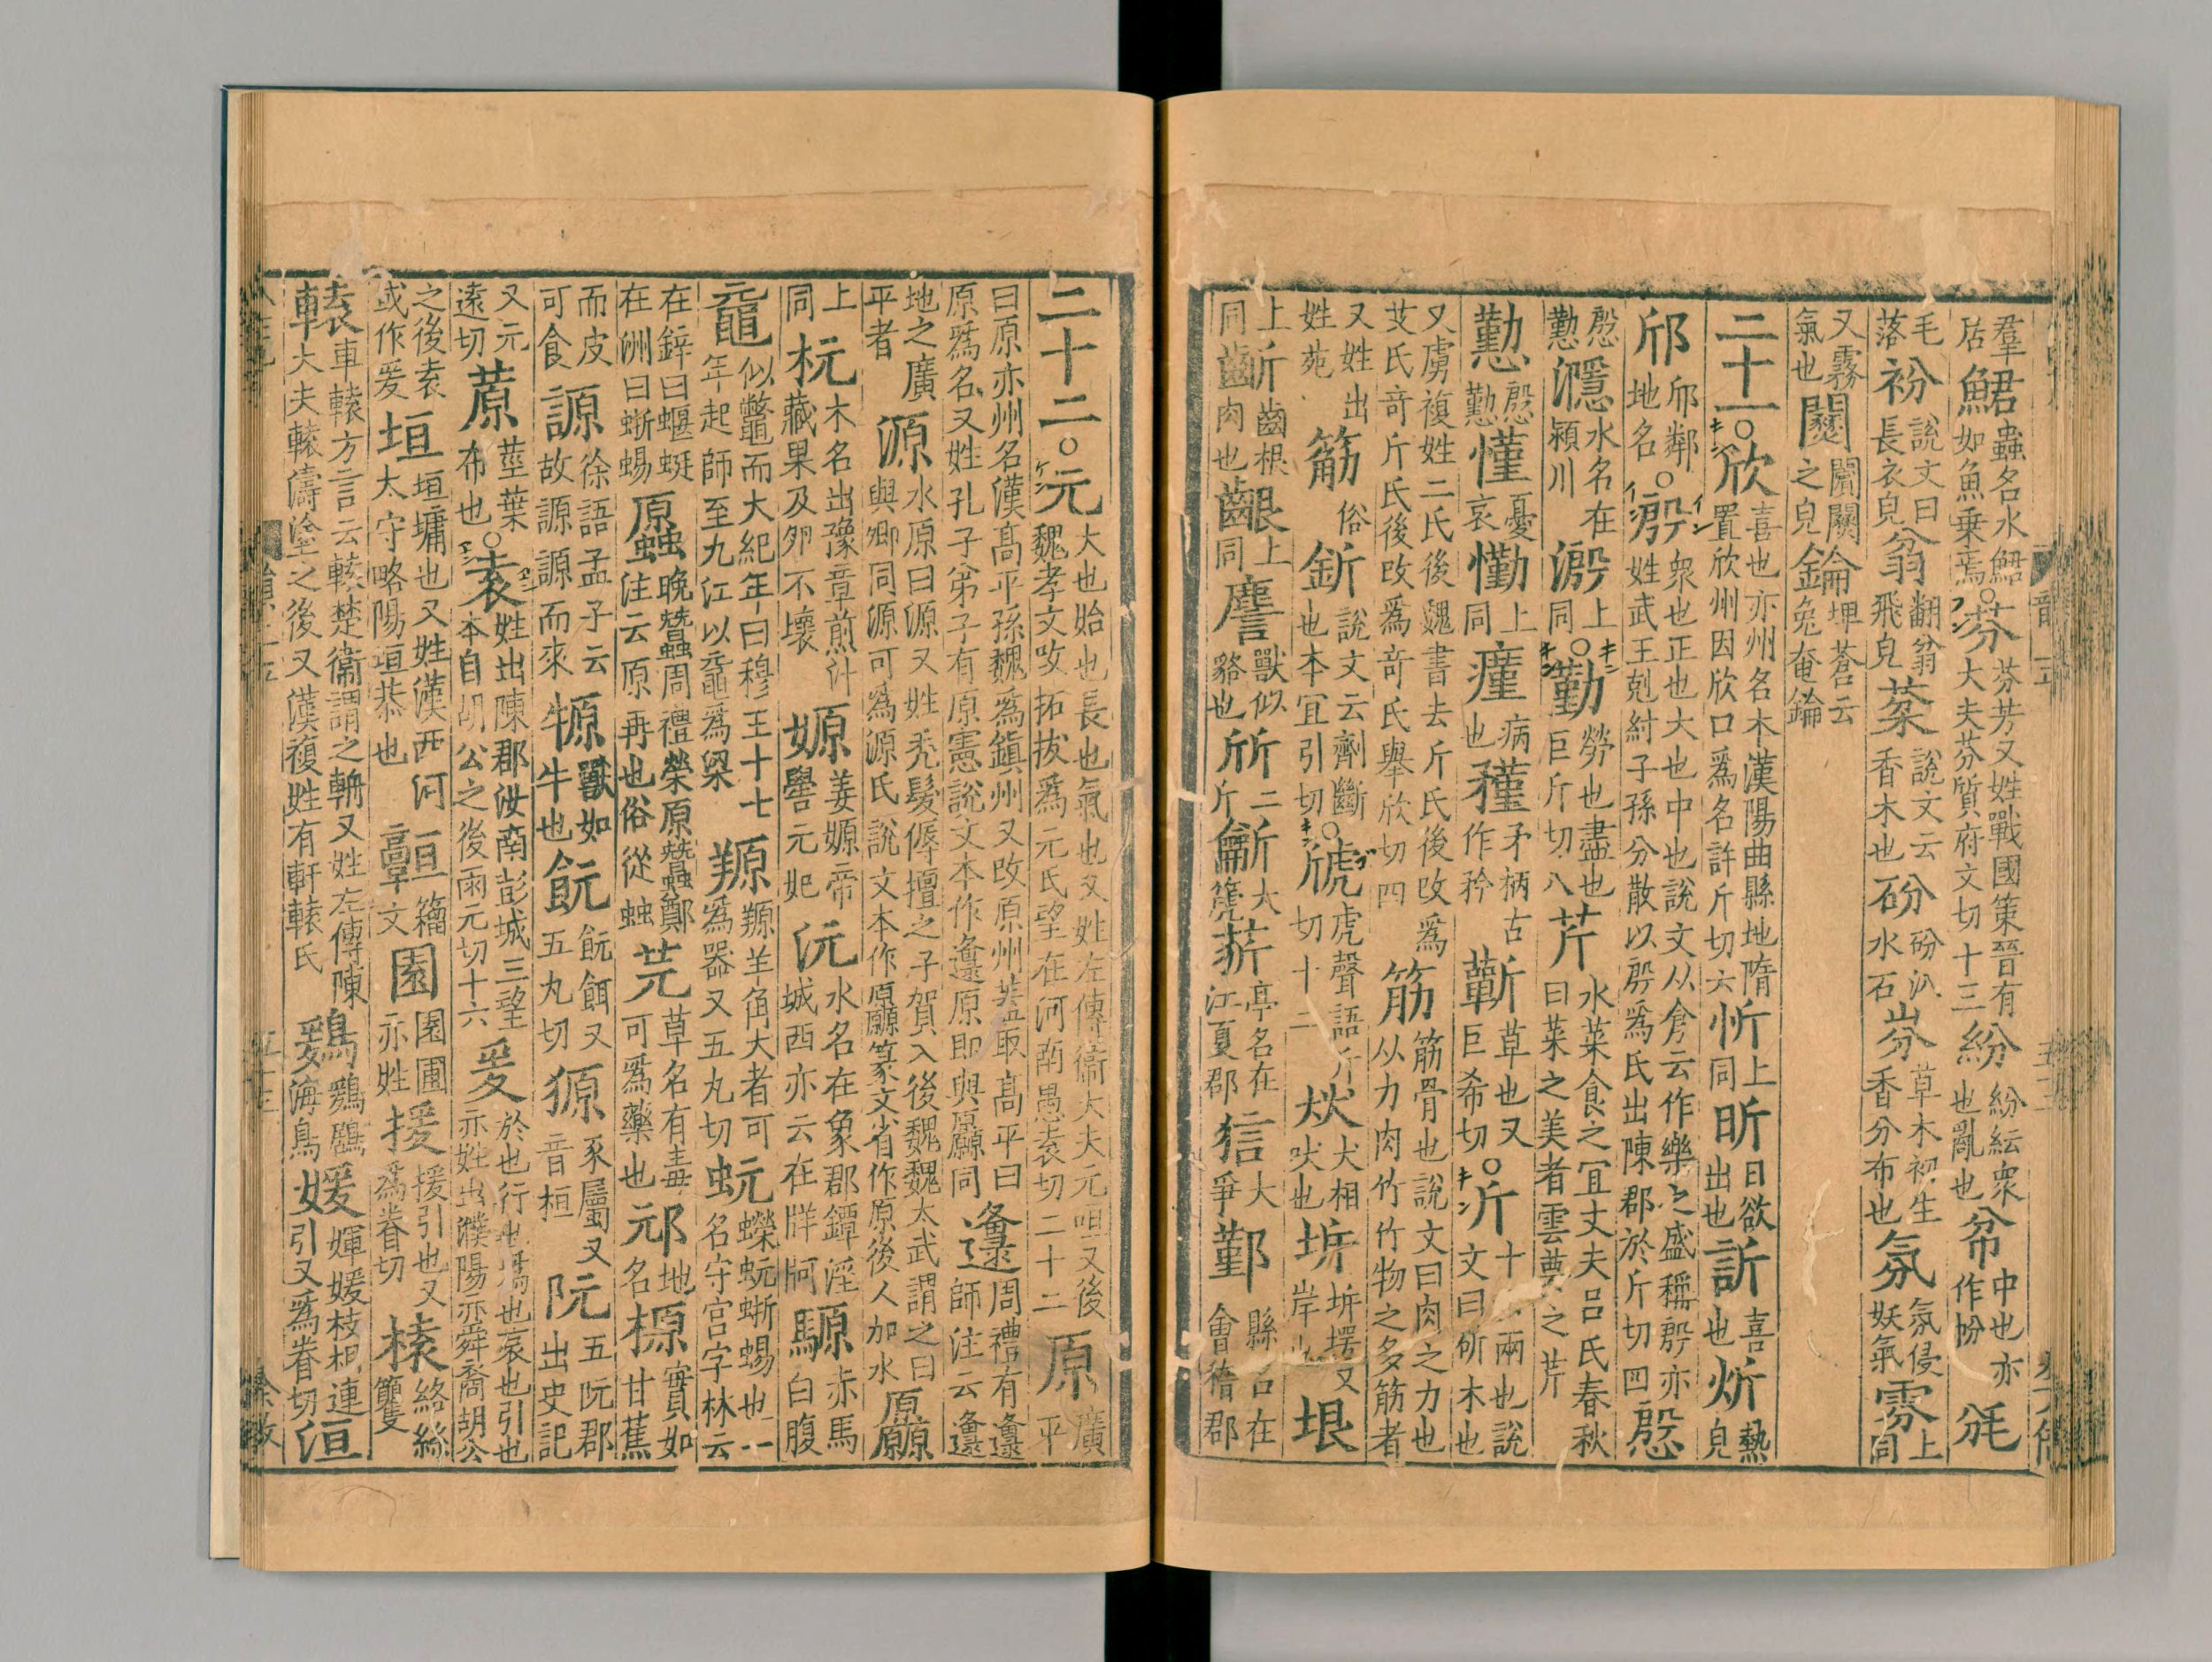 羣居 鮶蟲名水鮶如魚乗焉○芬芬芳又姓戰國策晉有大夫芬質府文切十三紛紛紜衆也亂也帉巾也亦作帉㲕
毛落衯說文曰長衣皃翂翻翂飛皃棻說文云香木也砏砏汃水石芬草木初生香分布也氛氛侵妖氣雰上同
又霧氣也闅之皃錀埤蒼云
二十一○欣喜也亦州名本漢陽曲縣地隋置欣州因欣口爲名許斤切六忻上同昕日欲出也訢喜也炘熱皃
邤邤鄰地名○殷衆也正也大也中也說文从㐆云作樂之盛稱殷亦姓武王剋紂子孫分散以殷爲氏出陳郡於斤切四慇
慇懃濦水名在潁川溵上同○勤勞也盡也巨斤切八芹水菜食之宜丈夫呂氏春秋曰菜之美者雲夢之芹
懃慇懃慬憂哀懄上同瘽病也䅖矛柄古作矜蘄草也又巨希切○斤十六兩也說文曰斫木也
又虜複姓二氏後魏書去斤氏後改爲艾氏奇斤氏後改爲奇氏舉欣切四筋筋骨也說文曰肉之力也从力肉竹竹物之多筋者
又姓出姓苑䈥俗釿說文云劑斷也本宜引切○虓虎聲語斤切十二㹞犬相吠也圻圻堮又岸也垠
上同齗齒根肉也齦上同䜣獸似貉也㹞二斤大江夏郡亭名在狺犬爭鄞縣名在會稽郡
二十二○元大也始也長也氣也又姓左傳衞大夫元咺又後魏孝文改拓拔爲元氏望在河南愚袁切二十二原廣平
曰原亦州名漢高平孫魏爲鎭州又改原州葢取高平曰原爲名又姓孔子弟子有原憲說文本作邍原即與厵同邍周禮有邍師注云邍
地之廣平者源水原曰源又姓禿髮傉擅之子賀入後魏魏太武謂之曰與卿同源可爲源氏說文本作厵篆文省作原後人加水厵
上同杬木名出豫章煎汁藏果及卵不壞嫄姜嫄帝嚳元妃沅水名在象郡鐔淫城西亦云在牂牁騵赤馬白腹
黿似鼈而大紀年曰穆王十七年起師至九江以黿爲梁羱羱羊角大者可爲器又五丸切蚖蠑蚖蜥蜴也一名守宮字林云
在鋅曰蝘蜓在洲曰蜥蜴䖠晚蠶周禮禜原蠶鄭注云原再也俗從䖵芫草名有毒可爲藥也邧地名榞實如甘蕉
而皮可食謜徐語孟子云故謜謜而來㹉獸如牛也䬧䬧餌又五丸切獂豕屬又音桓阮五阮郡出史記
又元遠切蒝莖葉布也○袁姓出陳郡汝南彭城三望本自胡公之後雨元切十六爰於也行也爲也哀也引也亦姓出濮陽亦舜裔胡公
之後袁或作爰垣垣墉也又姓漢西河太守略陽垣恭也䡣籀文園園圃亦姓援援引也又爲眷切榬絡絲籰
轅車轅方言云轅楚衞謂之輈又姓左傳陳大夫轅濤塗之後又漢複姓有軒轅氏鶢鶢鶋海鳥媛嬋媛枝相連引又爲眷切洹